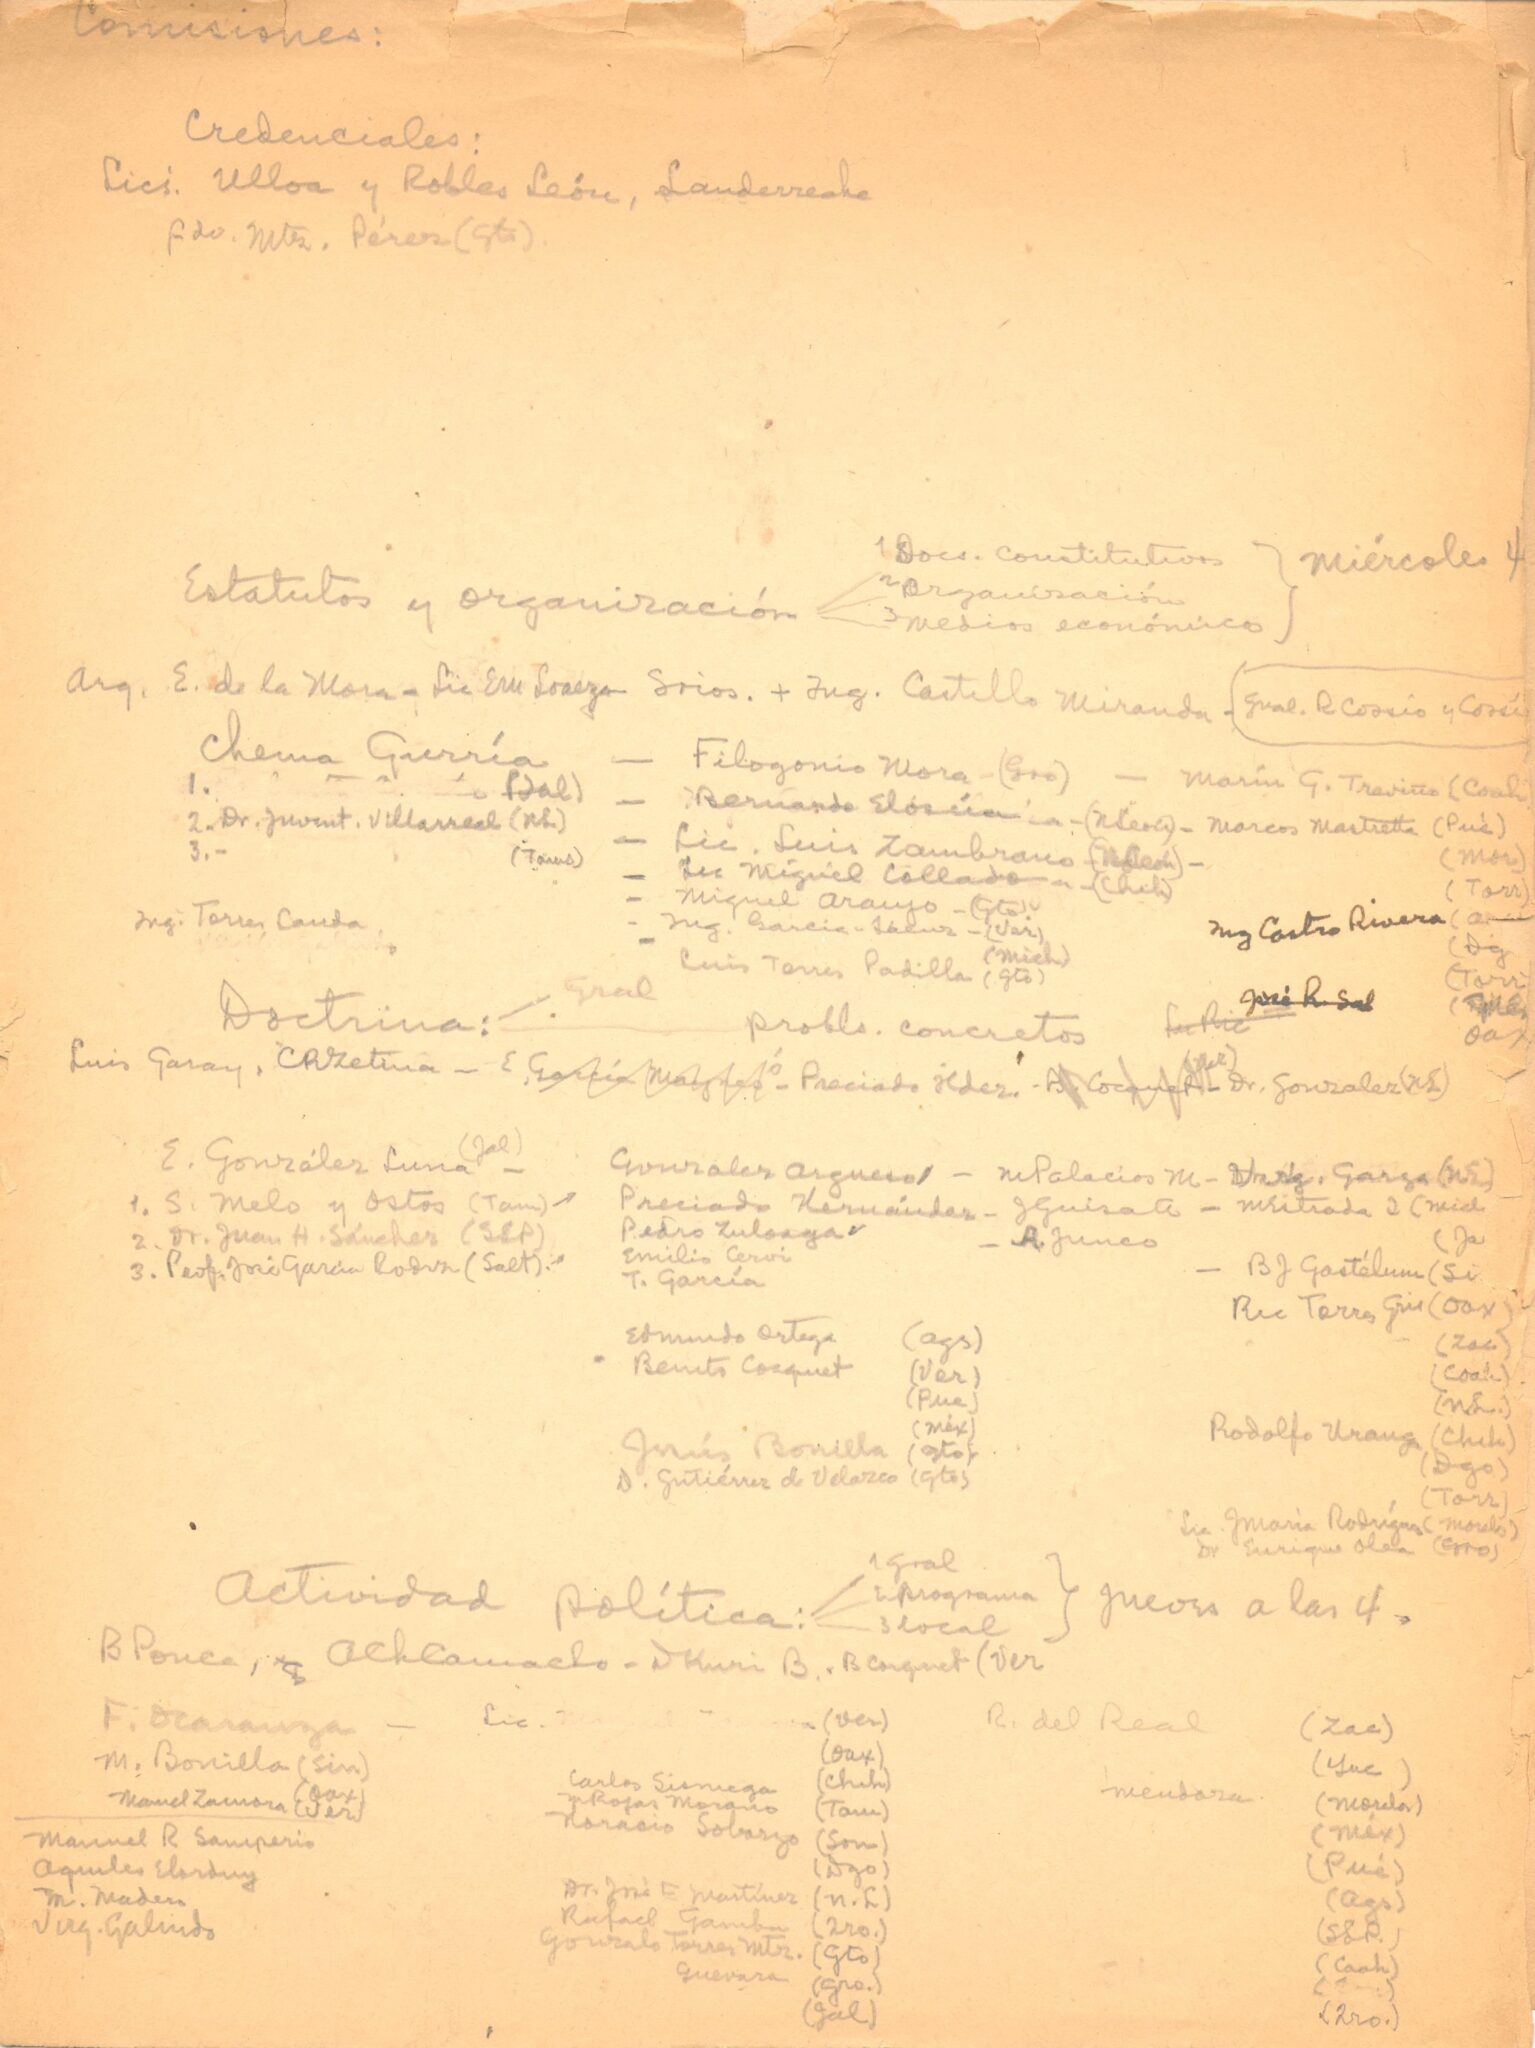 Comisiones:
Credenciales:
Lics. Ulloa y Robles León, Landerreche
Fdo. Mtz. Pérez (Gto).
Estatutos y organización
1 Docs. constitutivos
2 Organización
3 Medios económicos
Miércoles 4
Arq. E. de la Mora - Lic Srios. + Ing. Castillo Miranda - Gral. R Cossio y Cossi
Chema Gurría — Filogonio Mora - (Gro) — Marín G. Treviño (Coah)
1. — Bernardo Elósúa - (NLeon) - Marcos Mastretta (Pué)
2. Dr. Juvent. Villarreal (NL) — Lic. Luis Zambrano - (NLeón) - (Mor)
3. - (Tams) - Lic Miguel Collado - (Chih) (Torr)
- Miguel Araujo - (Gto)
Ing. Torres Landa - Ing. Garcia - (Ver) Ing Castro Rivera
(Mich) (Dg
- Luis Torres Padilla (Gto) (Torr
José R. Sal
Doctrina: Gral
probls. concretos
Oax
Luis Garay, CRZetina - E. García - Preciado Hder. - B. Cocquet (Ver) - Dr. Gonzalez (NL)
E. González Luna (Jal) - Gonzalez Argueso - MPalacios M - Virg. Garza (NL)
1. S. Melo y Ostos (Tam) Preciado Hernández - JGuisa A - MEstrada I (Mich
2. Dr. Juan H. Sánchez (SLP) Pedro Zuloaga - A. Junco (Ja
3. Prof. José García Rodrz (Salt). Emilio Cervi - B J Gastélum (Si
T. García Ric Torres (Oax)
Edmundo Ortega (Ags) (Zac)
Benito Cocquet (Ver) (Coah)
(Pue) (N.L.)
(Méx) Rodolfo Uranga (Chih)
Jesús Bonilla (Gto) (Dgo)
D. Gutiérrez de Velazco (Gto) (Torr)
Lic. JMaria Rodríguez (Morelos)
Dr Enrique Olea (Gro)
Actividad política:
1 Gral
2 programa
3 local
Jueves a las 4.
B Ponce, AChCamacho - D Kuri B. - B Cocquet (Ver
F. Ocaranza — Lic. (Ver) R. del Real (Zac)
M. Bonilla (Sin) (Oax) (Yuc)
(Oax Carlos Sisniega (Chih) Mendoza (Morelos)
Manuel Zamora (Ver) Rojas Morano (Tam) (Méx)
Manuel R Samperio Horacio Sobarzo (Son) (Pué)
Aquiles Elorduy (Dgo) (Ags)
M. Madero Dr. José F Martínez (N.L) (SLP.)
Virg. Galindo Rafael Gamba (Qro.) (Coah)
Gonzalo Torres Mtz. (Gto)
Guevara (Gro.)
(Jal) (Qro.)